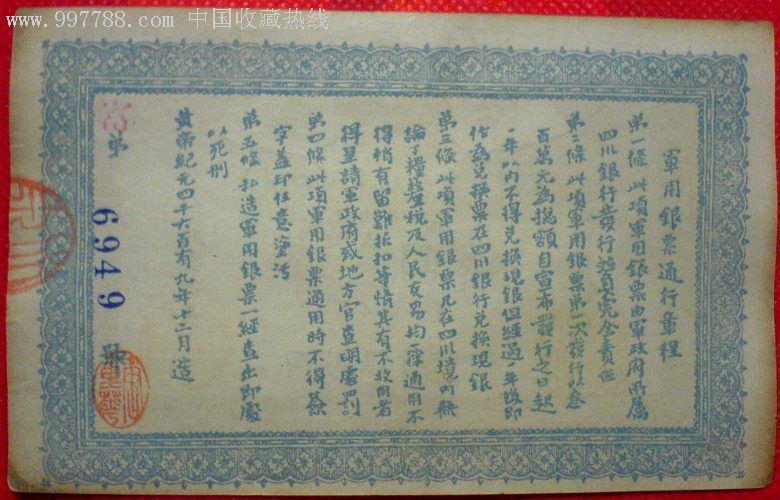 www.997788.com 中国收藏热线
軍用銀票通行章程
第一條此項軍用銀票由軍政府所屬
四川銀行發行並負完全責任
第二條此項軍用銀票第一次發行以叁
百萬元為總額自宣布發行之日起
一年以內不得兌換現銀但經過一年後即
作為兌換票在四川銀行兌換現銀
第三條此項軍用銀票凡在四川境內無
論丁糧釐稅及人民交易均一律通用不
得稍有留難折扣等情其有不收用者
得呈請軍政府或地方官查明處罰
第四條此項軍用銀票通用時不得簽
字蓋印任意塗污
第五條私造軍用銀票一經查出即處
以死刑
黃帝紀元四千六百有九年十二月造
第 6949 號